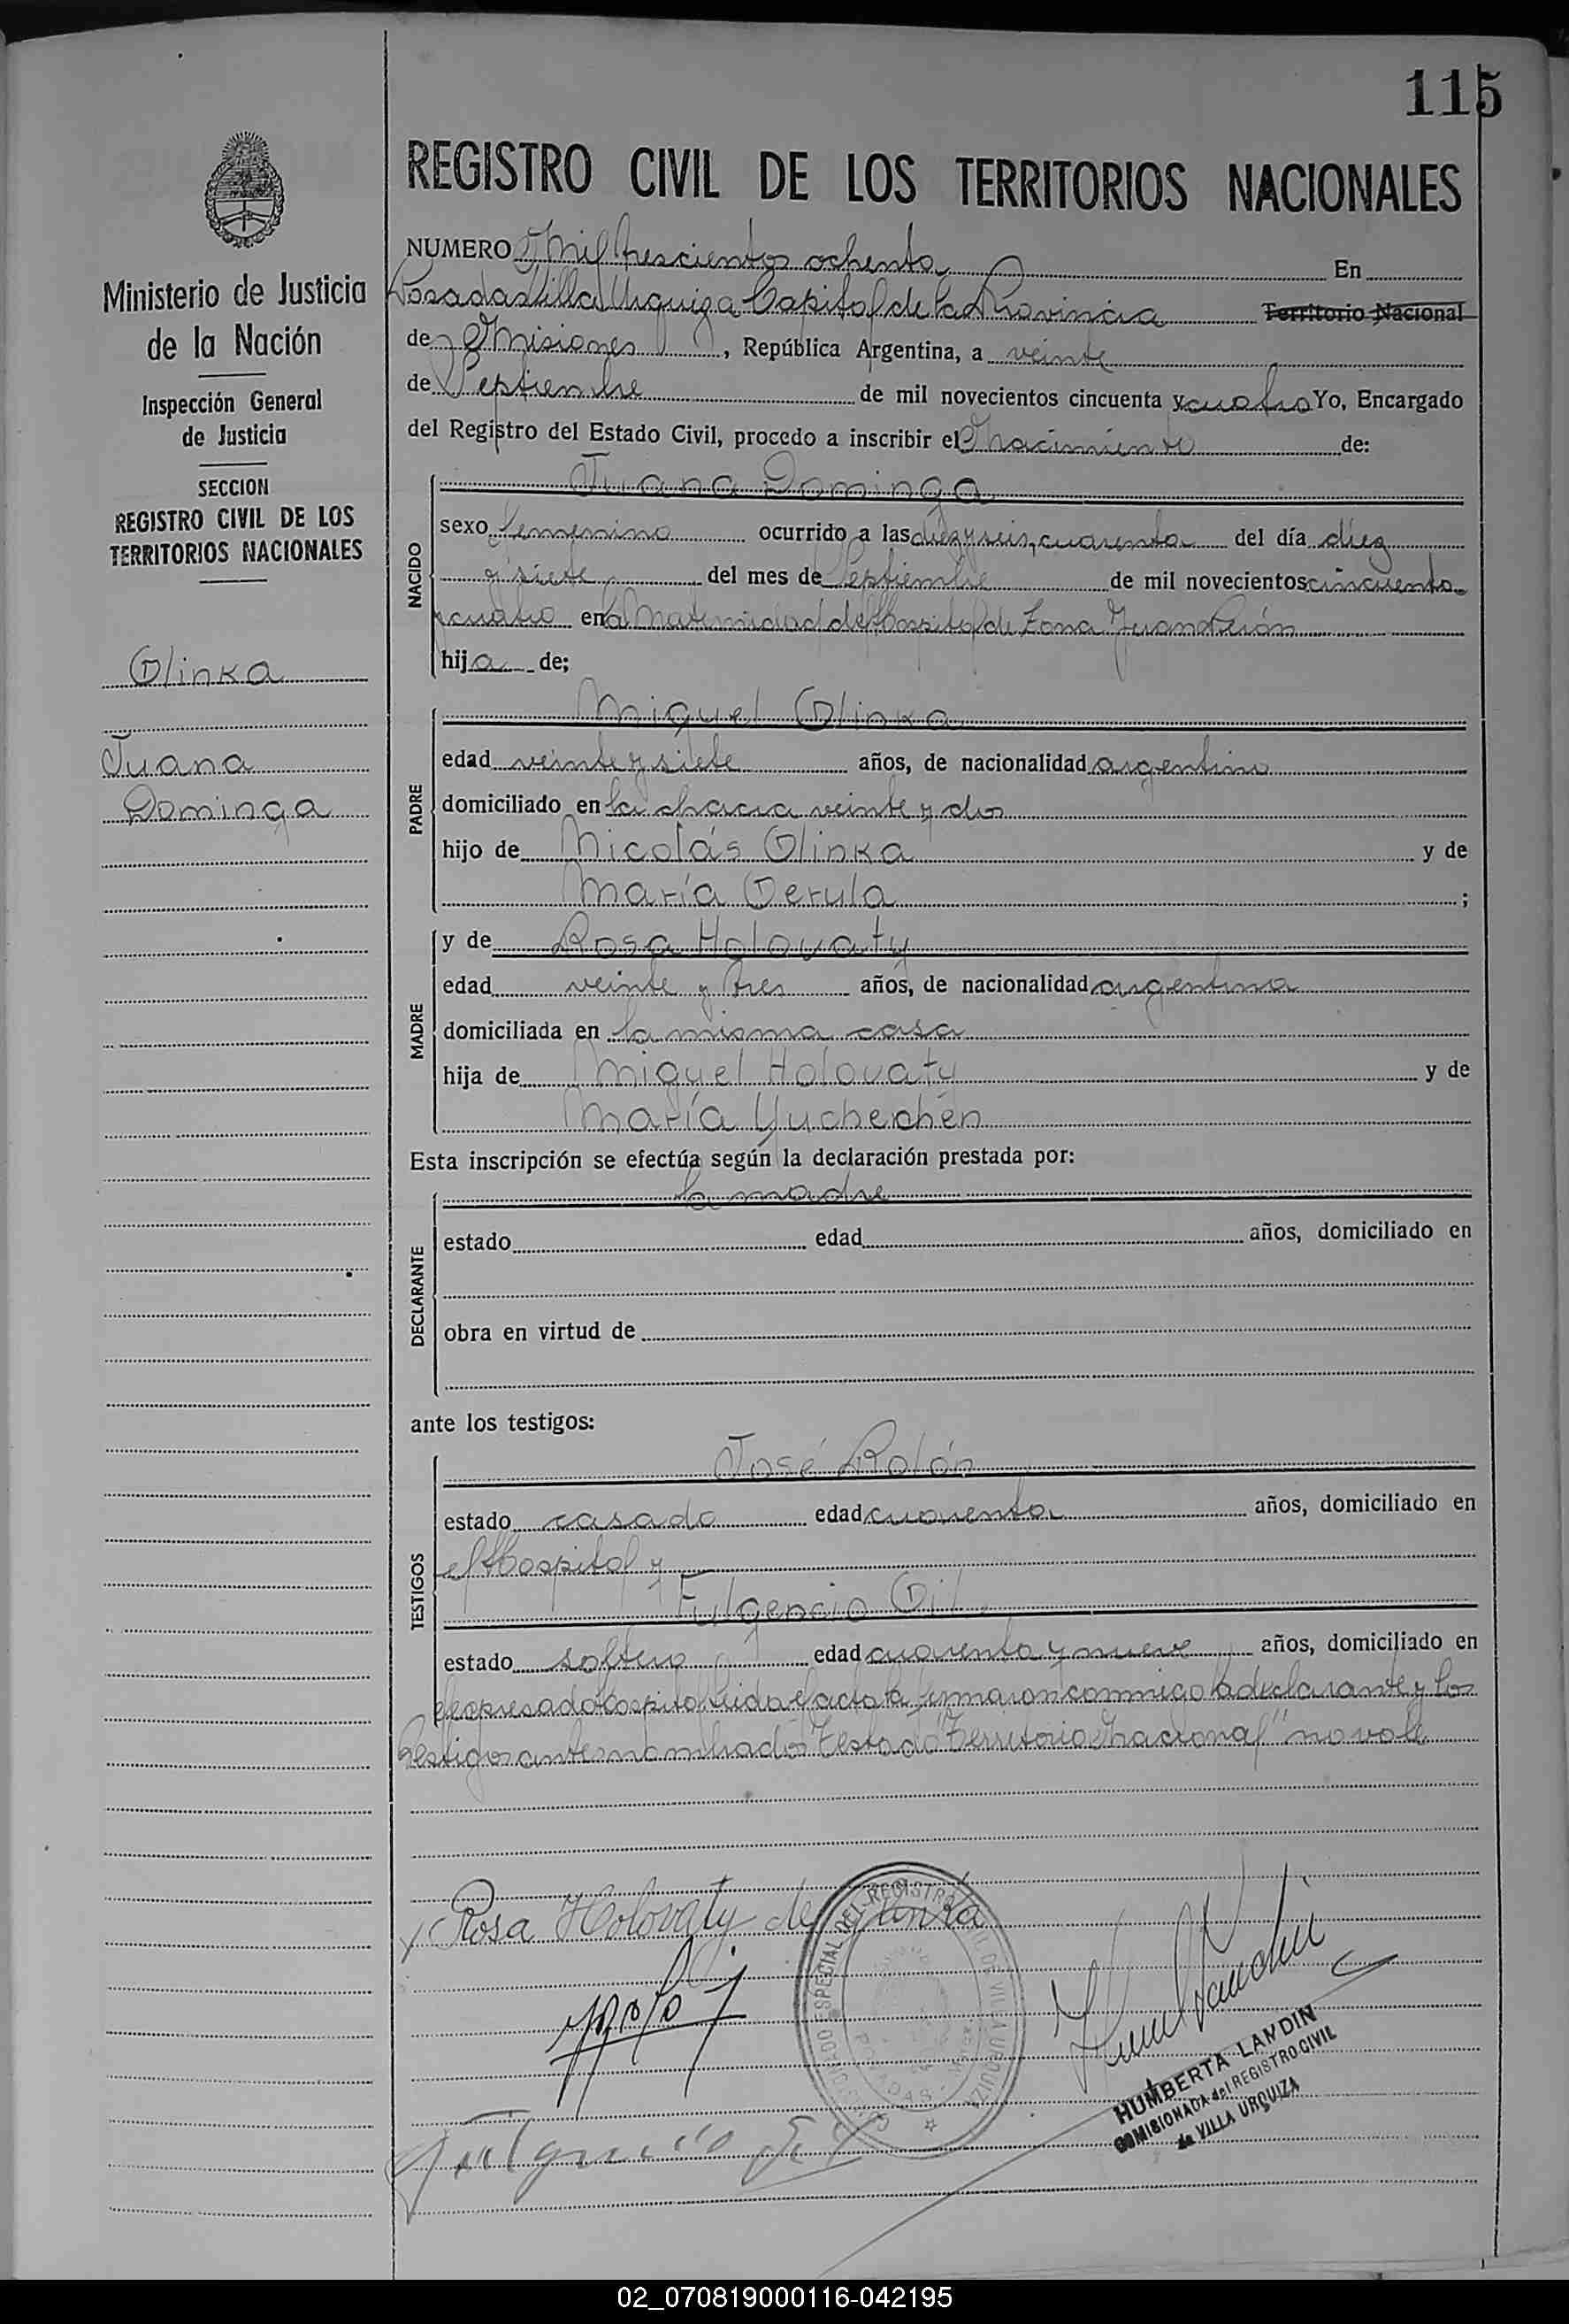 115
Ministerio de Justicia
de la Nación
Inspección General
de Justicia
SECCION
REGISTRO CIVIL DE LOS
TERRITORIOS NACIONALES
Glinka
Juana
Dominga
REGISTRO CIVIL DE LOS TERRITORIOS NACIONALES
NUMERO Mil trescientos ochenta En
Posadas Villa Urquiza Capital de la Provincia Territorio Nacional
de Misiones, República Argentina, a veinte
de Septiembre de mil novecientos cincuenta y cuatro Yo, Encargado
del Registro del Estado Civil, procedo a inscribir el Nacimiento de:
NACIDO
Juana Dominga
sexo femenino ocurrido a las diez y seis, cuarenta del día diez
y siete del mes de Septiembre de mil novecientos cincuenta
y cuatro en la Maternidad del Hospital de Zona Juan Perón
hija de;
PADRE
Miguel Glinka
edad veinte y siete años, de nacionalidad argentino
domiciliado en la chacra veinte y dos
hijo de Nicolás Glinka y de
María Gerula;
MADRE
y de Rosa Holovaty
edad veinte y tres años, de nacionalidad argentina
domiciliada en la misma casa
hija de Miguel Holovaty y de
María Yuchechen
Esta inscripción se efectúa según la declaración prestada por:
DECLARANTE
la madre
estado edad años, domiciliado en
obra en virtud de
ante los testigos:
TESTIGOS
José Rolón
estado casado edad cuarenta años, domiciliado en
el Hospital y
Fulgencio Gil
estado soltero edad cuarenta y nueve años, domiciliado en
el expresado Hospital Leida el acta la firmaron conmigo la declarante y los
testigos antes nombrados Testado "Territorio Nacional" no vale
Rosa Holovaty de Glinka
ESPECIAL DEL REGISTRO CIVIL DE VILLA URQUIZA
POSADAS
HUMBERTA LANDIN
COMISIONADA del REGISTRO CIVIL
de VILLA URQUIZA
Fulgencio Gil
02_070819000116-042195